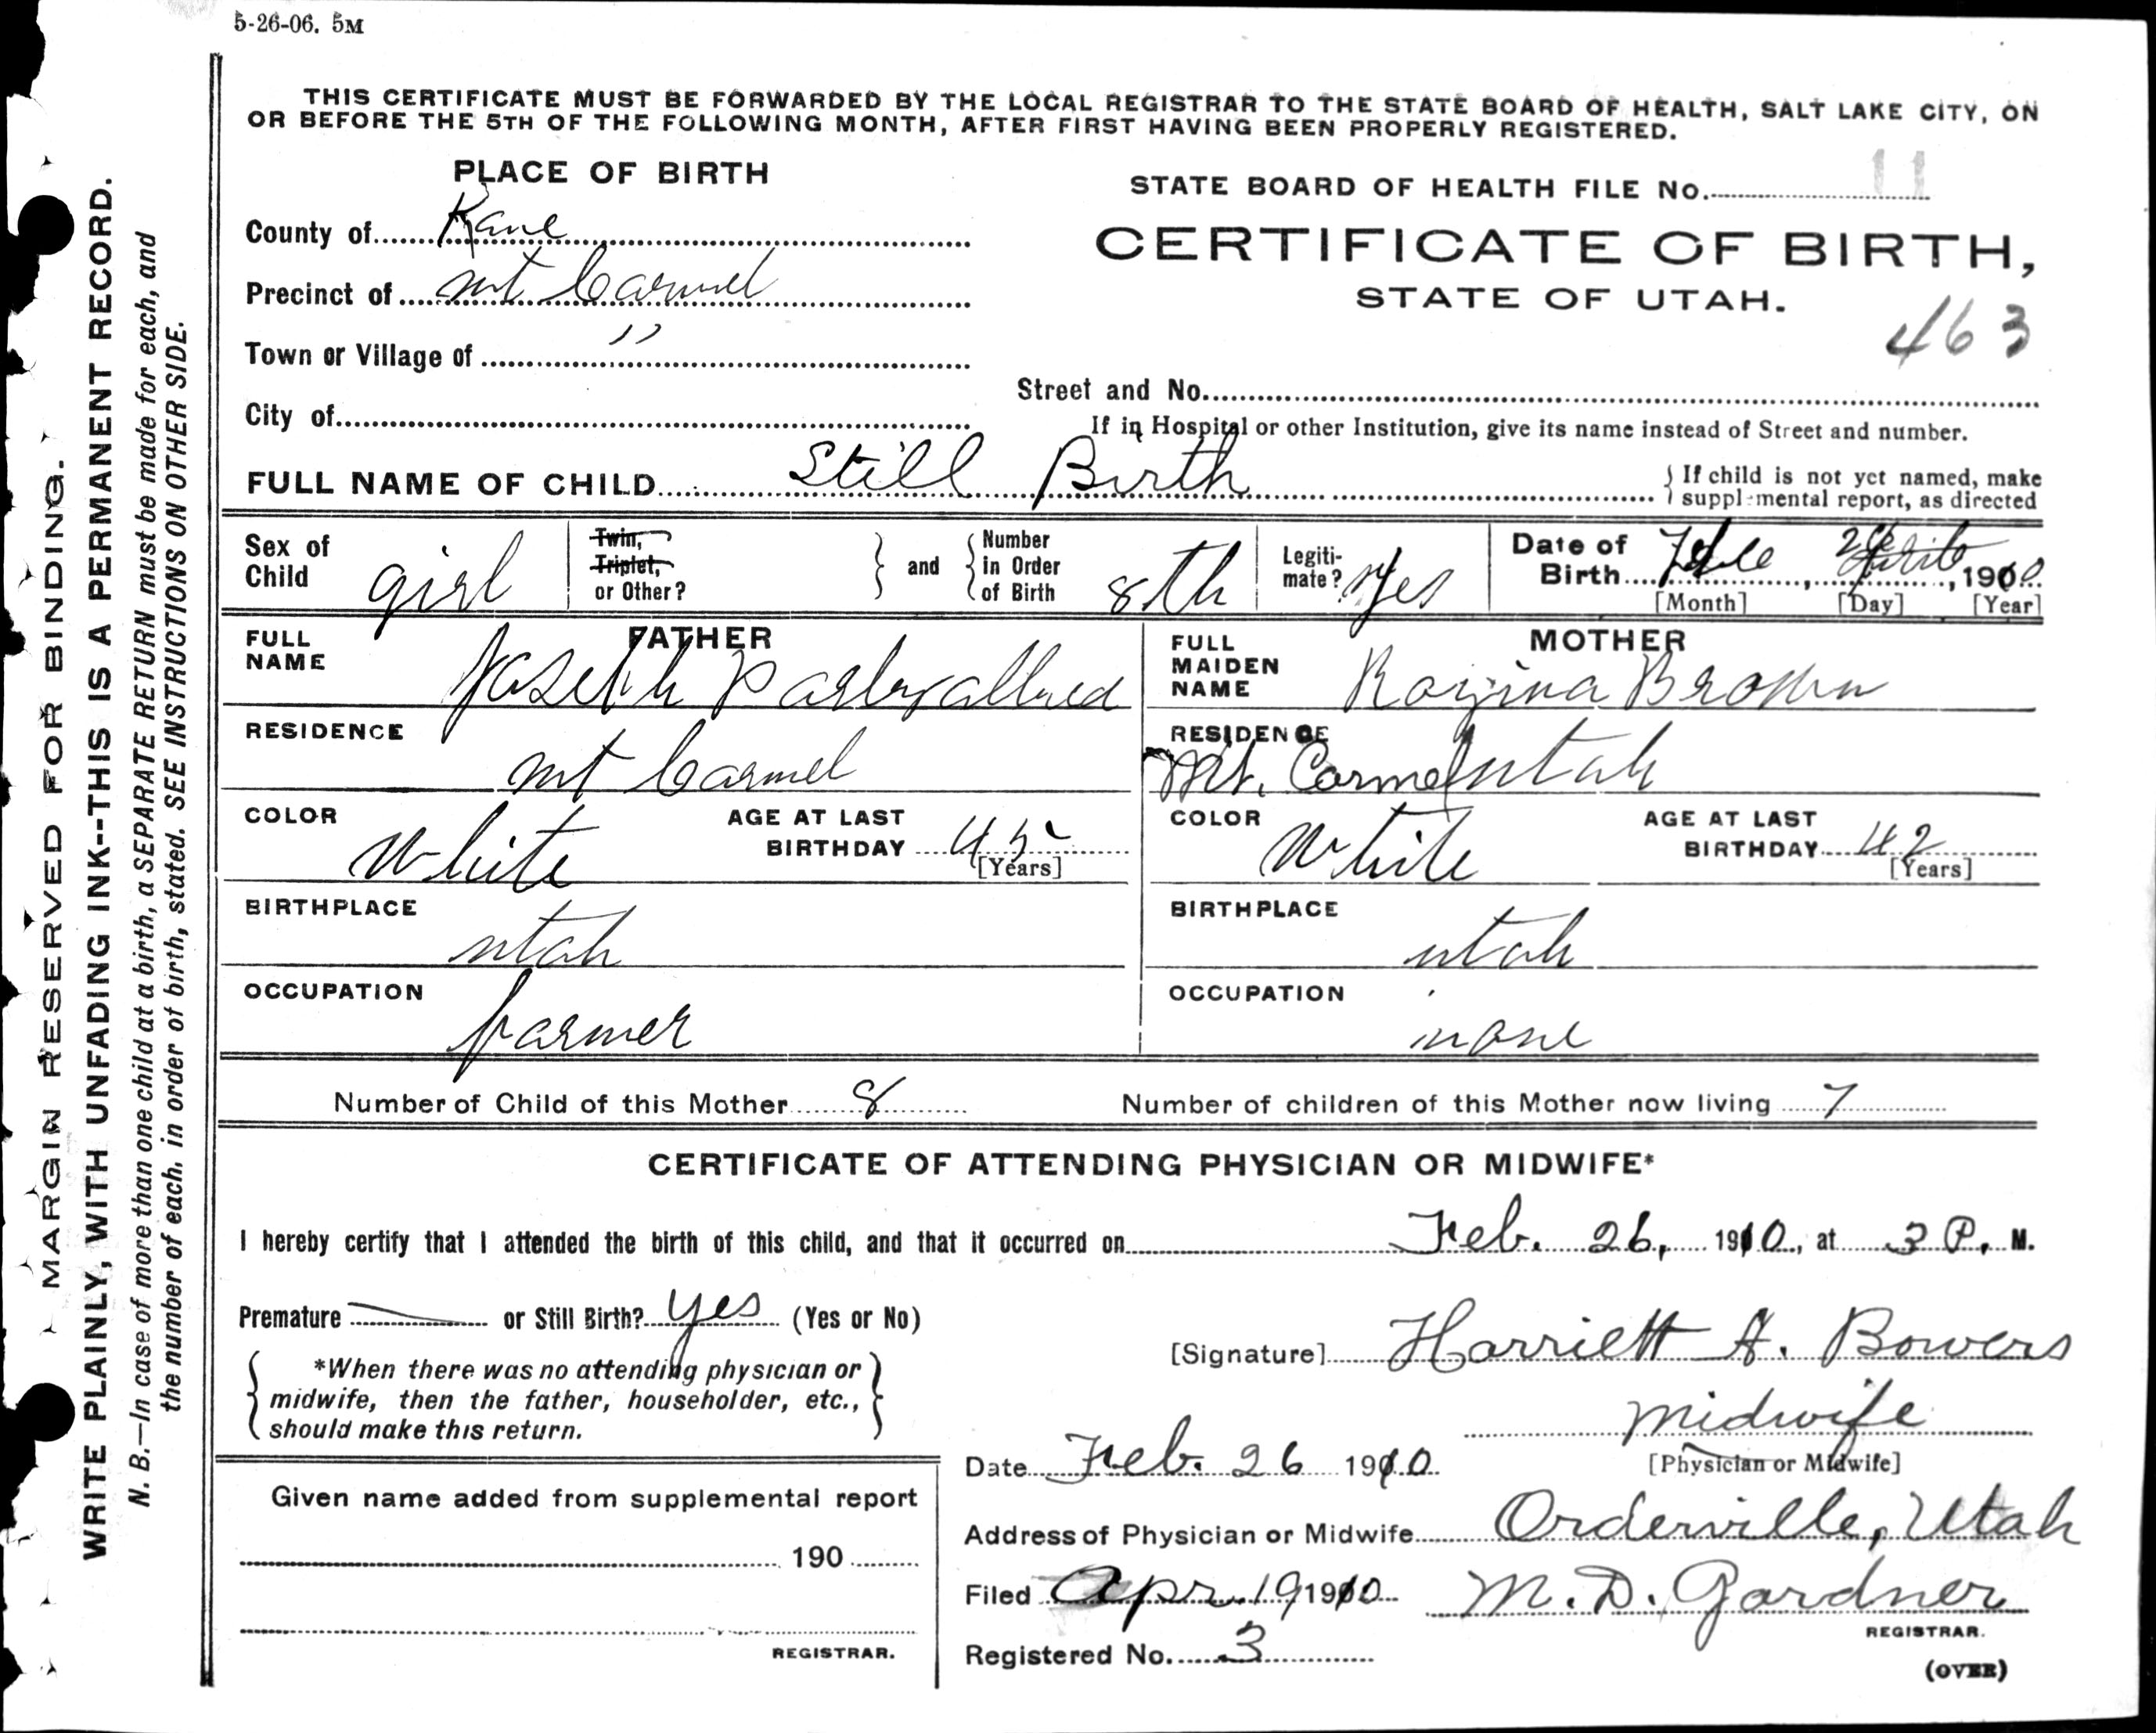 5-26-06. 5M
THIS CERTIFICATE MUST BE FORWARDED BY THE LOCAL REGISTRAR TO THE STATE BOARD OF HEALTH, SALT LAKE CITY, ON
OR BEFORE THE 5TH OF THE FOLLOWING MONTH, AFTER FIRST HAVING BEEN PROPERLY REGISTERED.
PLACE OF BIRTH
STATE BOARD OF HEALTH FILE No. 11
County of Kane
CERTIFICATE OF BIRTH,
Precinct of mt Carmel
STATE OF UTAH.
463
Town or Village of "
Street and No.
City of
If in Hospital or other Institution, give its name instead of Street and number.
FULL NAME OF CHILD Still Birth
If child is not yet named, make
supplemental report, as directed
Sex of Child girl
Twin, Triplet, or Other?
and
Number in Order of Birth 8th
Legiti-mate? Yes
Date of Birth 26, 1910
[Month] [Day] [Year]
FATHER
FULL NAME Joseph allred
MOTHER
FULL MAIDEN NAME Rozina Brown
RESIDENCE mt Carmel
RESIDENCE Mt. Carmel utah
COLOR White
AGE AT LAST BIRTHDAY 45 [Years]
COLOR White
AGE AT LAST BIRTHDAY 42 [Years]
BIRTHPLACE utah
BIRTHPLACE utah
OCCUPATION farmer
OCCUPATION none
Number of Child of this Mother 8
Number of children of this Mother now living 7
CERTIFICATE OF ATTENDING PHYSICIAN OR MIDWIFE*
I hereby certify that I attended the birth of this child, and that it occurred on Feb. 26, 1910, at 3 P. M.
Premature — or Still Birth? yes (Yes or No)
[Signature] Harriett A. Bowers
*When there was no attending physician or
midwife, then the father, householder, etc.,
should make this return.
midwife
[Physician or Midwife]
Date Feb. 26 1910
Given name added from supplemental report
190
REGISTRAR.
Address of Physician or Midwife Orderville, Utah
Filed Apr. 19 1910 M. D. Gardner
REGISTRAR.
Registered No. 3
(OVER)
MARGIN RESERVED FOR BINDING.
WRITE PLAINLY, WITH UNFADING INK--THIS IS A PERMANENT RECORD.
N. B.—In case of more than one child at a birth, a SEPARATE RETURN must be made for each, and
the number of each, in order of birth, stated. SEE INSTRUCTIONS ON OTHER SIDE.